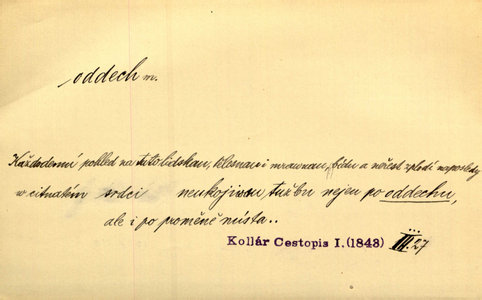 oddech m.
Každodenní pohled na tuto lidskau, tělesnau i mravnau, bídu a neřest zplodí naposledy
w citnatém srdci neukojitou, tužbu nejen po oddechu,
ale i po proměně místa..
Kollár Cestopis I. (1843) III. 27